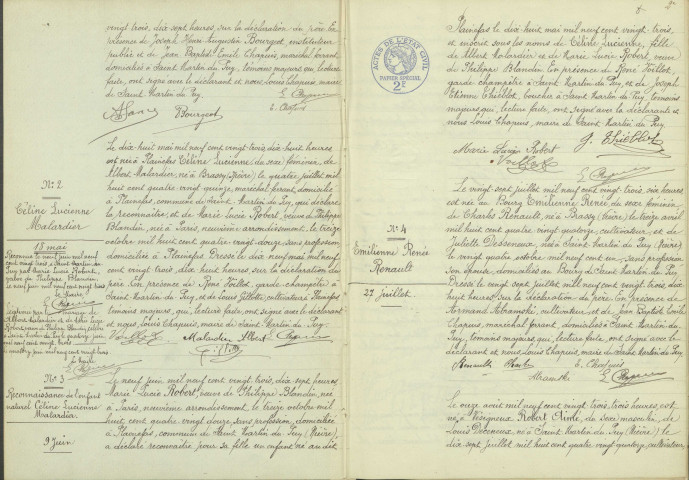 vingt trois, dix sept heures, sur la déclaration du père. En
présence de Joseph Henri Augustin Bourgeot, instituteur
public et de Jean Baptiste Emile Chapuis, maréchal ferrant
domiciliés à Saint Martin du Puy, témoins majeurs qui, lecture
faite, ont signé avec le déclarant et nous Louis Chapuis, maire
de Saint Martin du Puy.
Bourgeot
E. Chapuis
N° 2
Céline Lucienne
Malardier
18 mai
Reconnue le neuf juin mil neuf
cent vingt trois à Saint Martin du
Puy par Marie Lucie Robert,
veuve de Philippe Blandin.
Le neuf juin mil neuf cent vingt trois
Le Maire,
Légitimée par mariage de
Albert Malardier et de Marie Lucie
Robert
mil neuf cent vingt trois
Le dix huit mai mil neuf cent vingt trois, dix huit heures
est née à Plainefas Céline Lucienne du sexe féminin, de
Albert Malardier, né à Brassy (Nièvre) le quatre juillet mil
huit cent quatre vingt quinze, maréchal ferrant domicilié
à Plainefas, commune de Saint Martin du Puy, qui déclare
la reconnaître, et de Marie Lucie Robert, veuve de Philippe
Blandin, née à Paris, neuvième arrondissement, le treize
octobre mil huit cent quatre vingt douze, sans profession,
domiciliée à Plainefas. Dressé le dix neuf mai mil neuf
cent vingt trois, dix huit heures sur la déclaration du
père. En présence de René Voillot, garde champêtre à
Saint Martin du Puy, et de Louis Gillotte, cultivateur à Plainefas
témoins majeurs, qui, lecture faite, ont signé avec le déclarant
et nous, Louis Chapuis, maire de Saint Martin du Puy.
Voillot Malardier Albert
Gillotte
N° 3
Reconnaissance de l'enfant
naturel Céline Lucienne
Malardier
9 Juin
Le neuf juin mil neuf cent vingt trois, dix sept heures
Marie Lucie Robert, veuve de Philippe Blandin, née
à Paris, neuvième arrondissement, le treize octobre mil
huit cent quatre vingt douze, sans profession, domiciliée
à Plainefas, commune de Saint Martin du Puy (Nièvre)
a déclaré reconnaître pour sa fille un enfant né au dit
ACTES DE L'ETAT CIVIL
PAPIER SPECIAL
2F
Plainefas le dix huit mai mil neuf cent vingt trois,
et inscrit sous les noms de Céline Lucienne, fille
de Albert Malardier et de Marie Lucie Robert, veuve
de Philippe Blandin. En présence de René Voillot,
garde champêtre à Saint Martin du Puy, et de Joseph
Etienne Thieblot, boucher à Saint Martin du Puy, témoins
majeurs qui, lecture faite, ont signé avec la déclarante et
nous Louis Chapuis, maire de Saint Martin du Puy.
Marie Lucie Robert
J. Thieblot
Voillot
N° 4
Emilienne Renée
Renault
27 juillet
Le vingt sept juillet mil neuf cent vingt trois, six heures
est née au Bourg Emilienne Renée, du sexe féminin
de Charles Renault, né à Brassy (Nièvre) le treize avril
mil huit cent quatre vingt quatorze, cultivateur, et de
Juliette Desseneux, née à Saint Martin du Puy (Nièvre)
le vingt quatre octobre mil neuf cent un, sans profession,
son épouse domiciliés au Bourg de Saint Martin du Puy.
Dressé le vingt sept juillet mil neuf cent vingt trois,
dix huit heures sur la déclaration du père. En présence de
cultivateur, et de Jean Baptiste Emile
Chapuis, maréchal ferrant, domiciliés à Saint Martin du
Puy, témoins majeurs qui, lecture faite, ont signé avec le
déclarant et nous Louis Chapuis, maire de Saint Martin du Puy
Renault Charles
E. Chapuis
Le onze août mil neuf cent vingt trois, trois heures est
né à Vésigneux Robert Aimé, du sexe masculin, de
Louis né à Saint Martin du Puy (Nièvre) le
dix sept juillet mil huit cent quatre vingt quatorze, cultivateur,